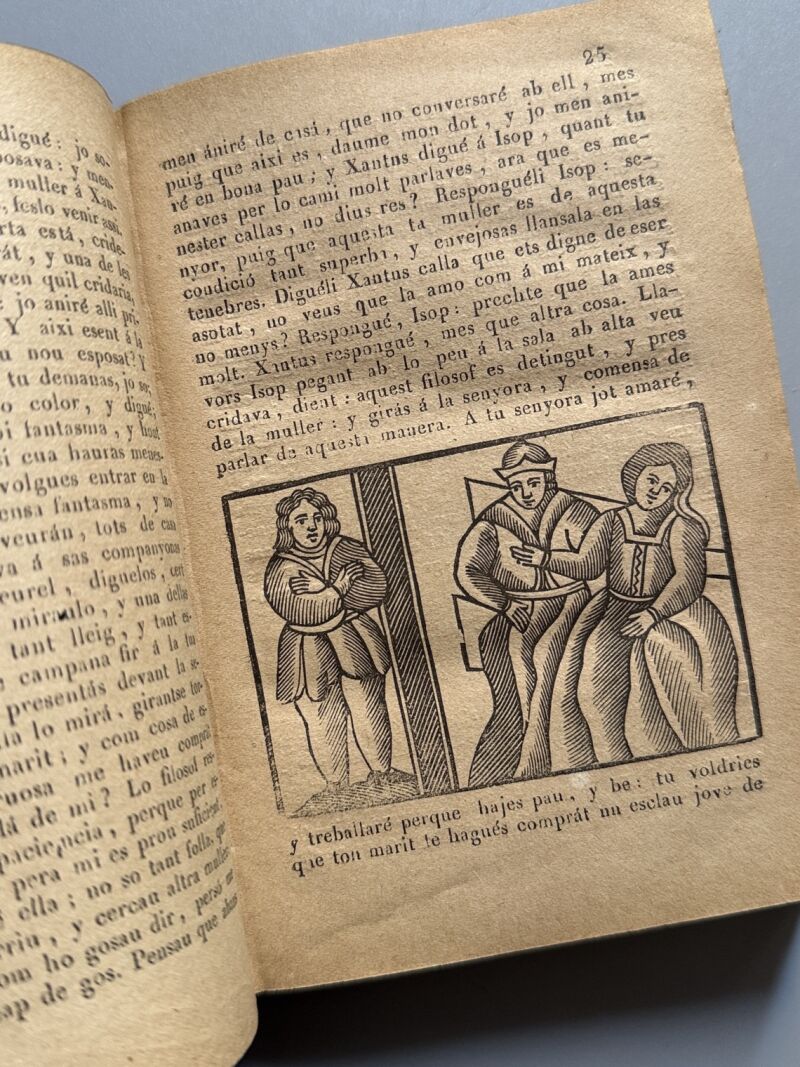 digué: jo so-
posava: y men-
muller á Xan-
, feslo venir assi.
rta está, cride-
rát, y una de les
ven quil cridaria,
: jo aniré alli pri-
Y aixi esent á la
u nou esposat? Y
tu demanas, jo so;
o color, y digué,
bi fantasma, y hont
sí cua hauras menes-
volgues entrar en la
ensa fantasma, y no
veurán, tots de casa
va á sas companyons:
eurel, diguelos, cert
miraulo, y una dellas
tant lleig, y tant es-
campana fir á la tua
presentás devant la se-
la lo mirá, girantse tor-
marit; y com cosa de es-
ruosa me haveu comprat
lá de mi? Lo filosof res-
paciencia, perque per es-
pera mi es prou suficient
s ella; no so tant folla, que
rriu, y cercau altra muller
om ho gosau dir, persó
ap de gos. Pensau que abans
25
men ániré de casá, que no conversaré ab ell, mes
puig que aixi es, daume mon dot, y jo men ani-
ré en bona pau; y Xantus digué á Isop, quant tu
anaves per lo cami molt parlaves, ara que es me-
nester callas, no dius res? Responguéli Isop: se-
nyor, puig que aquesta ta muller es de aquesta
condició tant superba, y envejosas llansala en las
tenebres. Diguéli Xantus calla que ets digne de eser
asotat, no veus que la amo com á mi mateix, y
no menys? Respongué, Isop: prechte que la ames
molt. Xantus respongué, mes que altra cosa. Lla-
vors Isop pegant ab lo peu á la sala ab alta veu
cridava, dient: aquest filosof es detingut, y pres
de la muller: y girás á la senyora, y comensa de
parlar de aquesta manera. A tu senyora jot amaré,
y treballaré perque hajes pau, y be: tu voldries
que ton marit te hagués comprát un esclau jove de